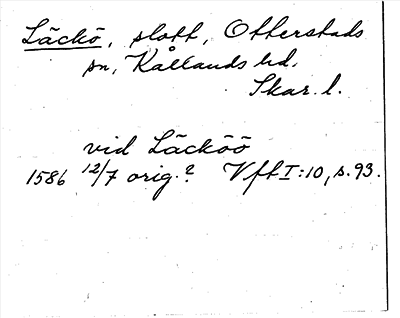 Läckö, slott, Otterstads
sn, Kållands hd,
Skar. l.
vid Läcköö
1586 12/7 orig.? Vft I:10, s. 93.